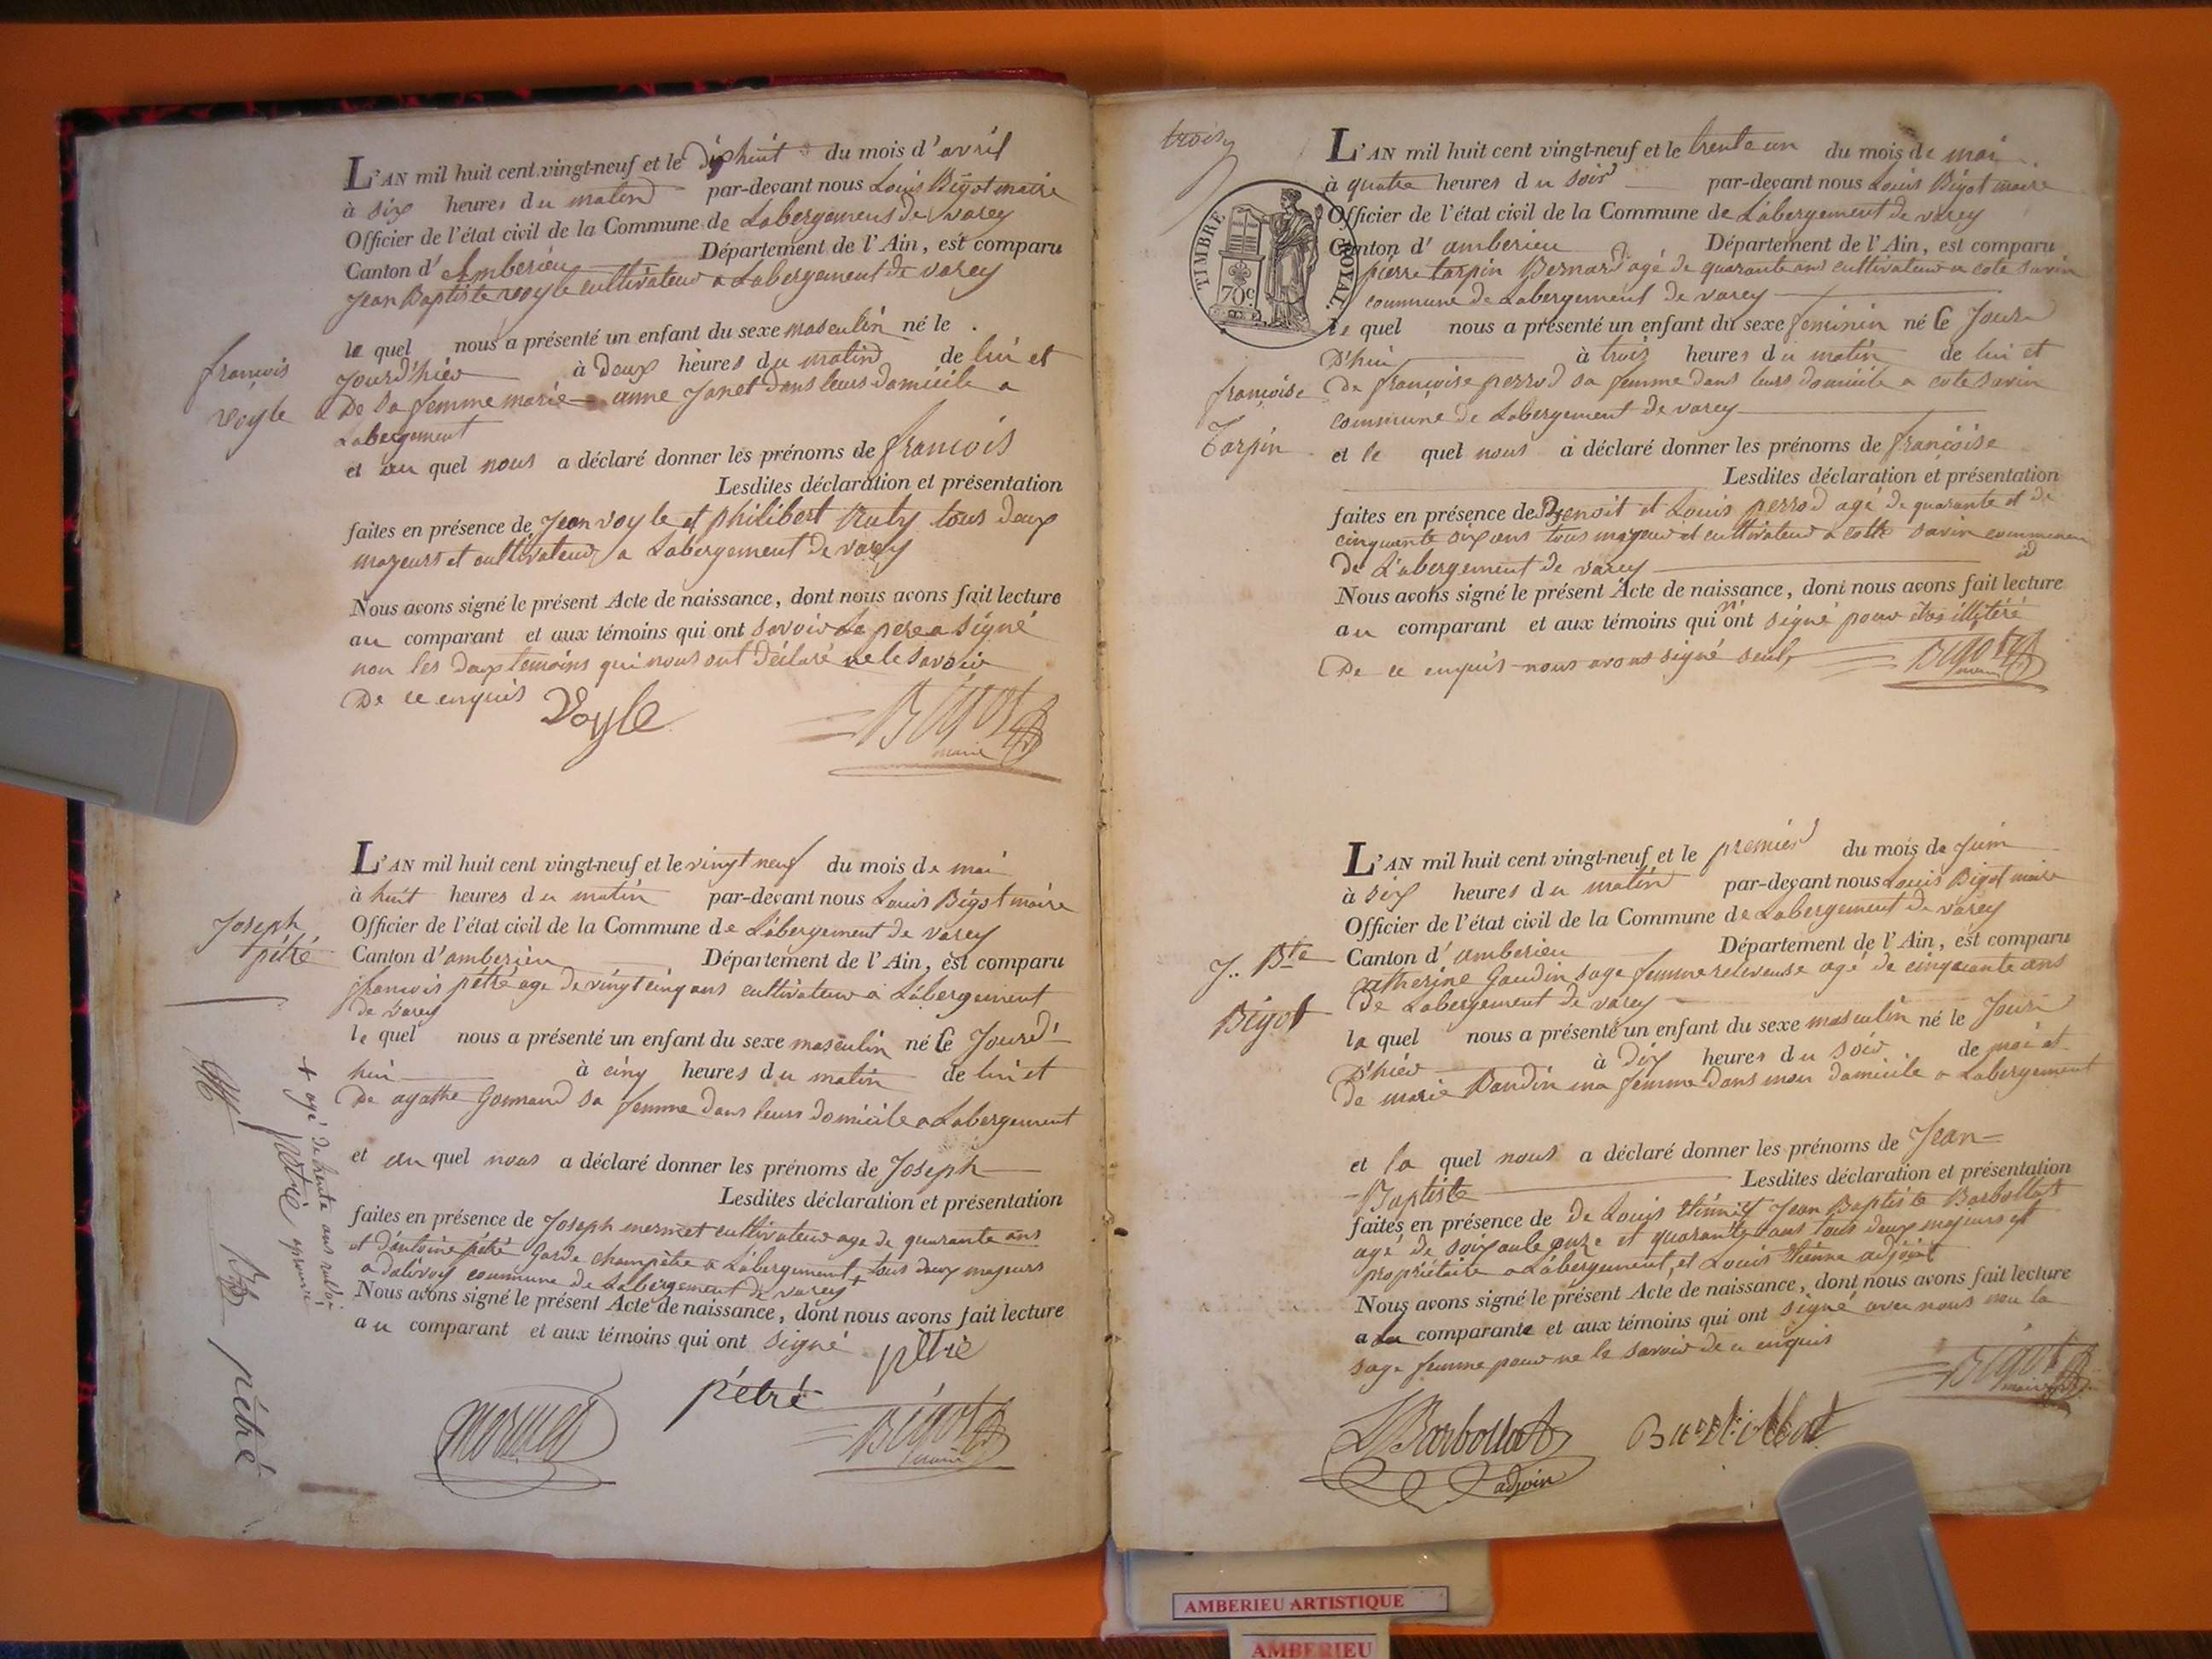 L'AN mil huit cent vingt-neuf et le dix huit du mois d'avril
à six heures du matin par-devant nous Louis Bigot maire
Officier de l'état civil de la Commune de Labergement de varey
Canton d'Amberieu Département de l'Ain, est comparu
Jean Baptiste voyle cultivateur a Labergement de varey
le quel nous a présenté un enfant du sexe masculin né le
Jourd'hier à deux heures du matin de lui et
De Sa femme marie anne Janet Dans leurs domicile a
Labergement
et au quel nous a déclaré donner les prénoms de francois
Lesdites déclaration et présentation
faites en présence de Jean voyle et philibert tous deux
majeurs et cultivateur a Labergement de varey
Nous avons signé le présent Acte de naissance, dont nous avons fait lecture
au comparant et aux témoins qui ont Savoir Le pere a signé
non les deux temoins qui nous ont déclaré ne le Savoir
De ce enquis Voyle Bigot
maire
francois
voyle
L'AN mil huit cent vingt-neuf et le vingt neuf du mois de mai
à huit heures du matin par-devant nous Louis Bigot maire
Officier de l'état civil de la Commune de Labergement de varey
Canton d'amberieu Département de l'Ain, est comparu
francois pétré age de vingt cinq ans cultivateur a Labergement
de varey
le quel nous a présenté un enfant du sexe masculin né le Jourd'
hui à cinq heures du matin de lui et
De agathe sa femme Dans leurs domicile a Labergement
et au quel nous a déclaré donner les prénoms de Joseph
Lesdites déclaration et présentation
faites en présence de Joseph mermet cultivateur age de quarante ans
et d'antoine pétré Garde champêtre a Labergement + tous deux majeurs
a dalivoy commune de Labergement de varey
Nous avons signé le présent Acte de naissance, dont nous avons fait lecture
au comparant et aux témoins qui ont signé petré
pétré
mermet Bigot
maire
Joseph
pétré
+ agé de trente ans
petré
pétré
trois
TIMBRE ROYAL
70c
L'AN mil huit cent vingt-neuf et le trente un du mois de mai
à quatre heures du soir par-devant nous Louis Bigot maire
Officier de l'état civil de la Commune de Labergement de varey
Canton d'amberieu Département de l'Ain, est comparu
pierre tarpin Bernard agé de quarante ans cultivateur a cote savin
commune de Labergement de varey
le quel nous a présenté un enfant du sexe feminin né le Jour
D'hui à trois heures du matin de lui et
De françoise perrod sa femme dans leurs domicile a cote savin
commune de Labergement de varey
et le quel nous a déclaré donner les prénoms de françoise
Lesdites déclaration et présentation
faites en présence de Benoit et Louis perrod agé de quarante et de
cinquante six ans tous majeur et cultivateur a cotte savin commune
de Labergement de varey
Nous avons signé le présent Acte de naissance, dont nous avons fait lecture
au comparant et aux témoins qui n'ont signé pour
De ce enquis nous avons signé seul Bigot
maire
françoise
Tarpin
L'AN mil huit cent vingt-neuf et le premier du mois de Juin
à six heures du matin par-devant nous Louis Bigot maire
Officier de l'état civil de la Commune de Labergement de varey
Canton d'amberieu Département de l'Ain, est comparu
catherine Gaudin sage femme releveuse agé de cinquante ans
De Labergement de varey
la quel nous a présenté un enfant du sexe masculin né le Jour
D'hier à Dix heures du soir de moi et
de marie Baudin ma femme Dans mon domicile a Labergement
et la quel nous a déclaré donner les prénoms de Jean=
=Baptiste Lesdites déclaration et présentation
faites en présence de De Louis Etienne et Jean Baptiste Barbollat
agé de soixante onze et quarante ans tous deux majeurs et
propriétaire a Labergement, et Louis Etienne adjoint
Nous avons signé le présent Acte de naissance, dont nous avons fait lecture
a La comparante et aux témoins qui ont signé avec nous non la
sage femme pour ne le savoir de ce enquis
Bigot
maire
L Barbollat
adjoin
J.. Bte
Bigot
AMBERIEU ARTISTIQUE
AMBERIEU